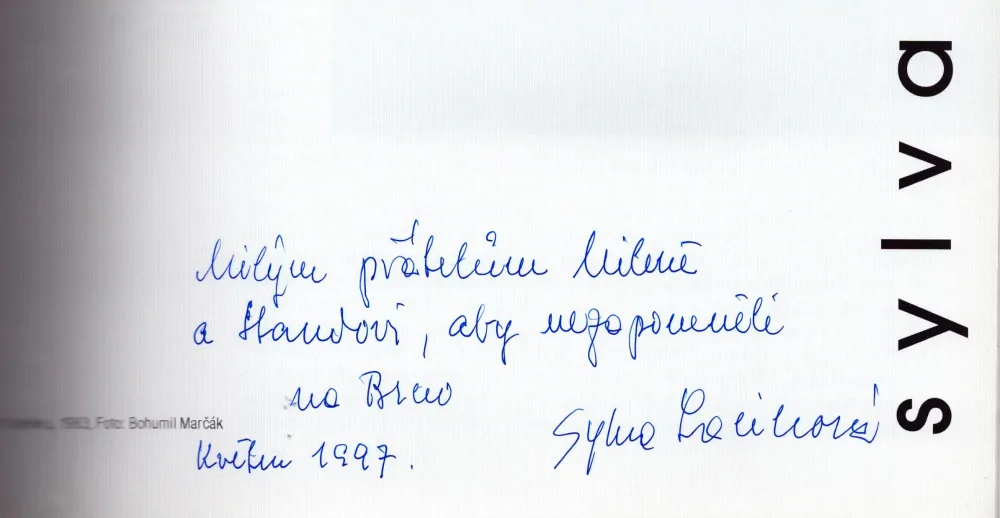 Milým přátelům Mileně
a Standovi, aby nezapomněli
na Brno
Květen 1997.
Sylva Lacinová
1983, Foto: Bohumil Marčák
sylva